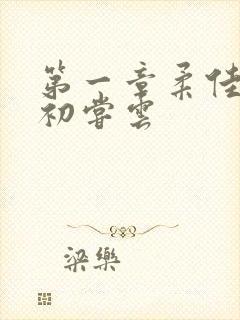 第一章柔佳
初嘗雲
梁樂